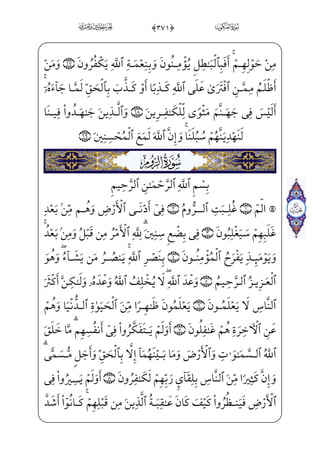 سُورَةُ الْعَنْكَبُوت ﴿٣٧١﴾
مِنْ حَوْلِهِمْ ۚ أَفَبِٱلْبَٰطِلِ يُؤْمِنُونَ وَبِنِعْمَةِ ٱللَّهِ يَكْفُرُونَ ۝٦٧ وَمَنْ
أَظْلَمُ مِمَّنِ ٱفْتَرَىٰ عَلَى ٱللَّهِ كَذِبًا أَوْ كَذَّبَ بِٱلْحَقِّ لَمَّا جَآءَهُۥٓ ۚ
أَلَيْسَ فِى جَهَنَّمَ مَثْوًى لِّلْكَٰفِرِينَ ۝٦٨ وَٱلَّذِينَ جَٰهَدُوا۟ فِينَا
لَنَهْدِيَنَّهُمْ سُبُلَنَا ۚ وَإِنَّ ٱللَّهَ لَمَعَ ٱلْمُحْسِنِينَ ۝٦٩
سُورَةُ الرُّومِ
بِسْمِ ٱللَّهِ ٱلرَّحْمَٰنِ ٱلرَّحِيمِ
الٓمٓ ۝١ غُلِبَتِ ٱلرُّومُ ۝٢ فِىٓ أَدْنَى ٱلْأَرْضِ وَهُم مِّنۢ بَعْدِ
غَلَبِهِمْ سَيَغْلِبُونَ ۝٣ فِى بِضْعِ سِنِينَ ۗ لِلَّهِ ٱلْأَمْرُ مِن قَبْلُ وَمِنۢ بَعْدُ ۚ
وَيَوْمَئِذٍ يَفْرَحُ ٱلْمُؤْمِنُونَ ۝٤ بِنَصْرِ ٱللَّهِ ۚ يَنصُرُ مَن يَشَآءُ ۖ وَهُوَ
ٱلْعَزِيزُ ٱلرَّحِيمُ ۝٥ وَعْدَ ٱللَّهِ ۖ لَا يُخْلِفُ ٱللَّهُ وَعْدَهُۥ وَلَٰكِنَّ أَكْثَرَ
ٱلنَّاسِ لَا يَعْلَمُونَ ۝٦ يَعْلَمُونَ ظَٰهِرًا مِّنَ ٱلْحَيَوٰةِ ٱلدُّنْيَا وَهُمْ
عَنِ ٱلْأَخِرَةِ هُمْ غَٰفِلُونَ ۝٧ أَوَلَمْ يَتَفَكَّرُوا۟ فِىٓ أَنفُسِهِم ۗ مَّا خَلَقَ
ٱللَّهُ ٱلسَّمَٰوَٰتِ وَٱلْأَرْضَ وَمَا بَيْنَهُمَآ إِلَّا بِٱلْحَقِّ وَأَجَلٍ مُّسَمًّى ۗ
وَإِنَّ كَثِيرًا مِّنَ ٱلنَّاسِ بِلِقَآئِ رَبِّهِمْ لَكَٰفِرُونَ ۝٨ أَوَلَمْ يَسِيرُوا۟ فِى
ٱلْأَرْضِ فَيَنظُرُوا۟ كَيْفَ كَانَ عَٰقِبَةُ ٱلَّذِينَ مِن قَبْلِهِمْ ۚ كَانُوٓا۟ أَشَدَّ